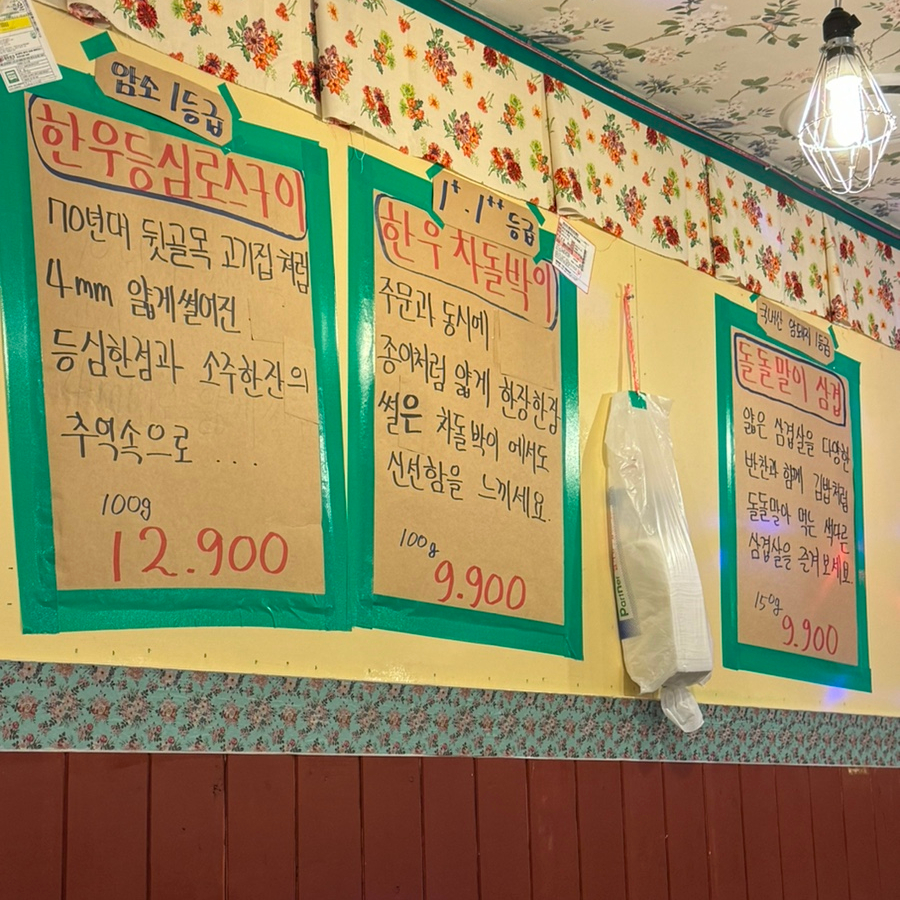 암소 1등급
한우등심로스구이
70년대 뒷골목 고기집 처럼
4mm 얇게썰어진
등심한점과 소주한잔의
추억속으로 ....
100g
12.900
1⁺.1⁺⁺ 등급
한우 차돌박이
주문과 동시에
종이처럼 얇게 한장한점
썰은 차돌박이 에서도
신선함을 느끼세요.
100g
9.900
국내산 암퇘지 1등급
돌돌말이 삼겹
얇은 삼겹살을 다양한
반찬과 함께 김밥처럼
돌돌말아 먹는 색다른
삼겹살을 즐겨보세요.
150g
9.900